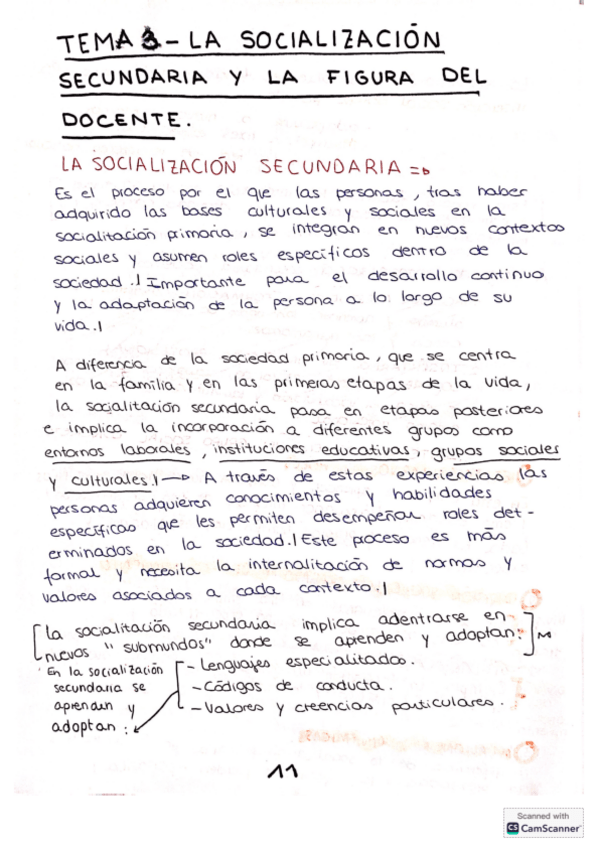 TEMA 3.- LA SOCIALIZACIÓN
SECUNDARIA Y LA FIGURA DEL
DOCENTE.
LA SOCIALIZACIÓN SECUNDARIA =>
Es el proceso por el que las personas, tras haber
adquirido las bases culturales y sociales en la
socialitación primaria, se integran en nuevos contextos
sociales y asumen roles específicos dentro de la
sociedad.| Importante para el desarrollo continuo
y la adaptación de la persona a lo largo de su
vida.|
A diferencia de la sociedad primaria, que se centra
en la familia y en las primeras etapas de la vida,
la socialitación secundaria pasa en etapas posteriores
e implica la incorporación a diferentes grupos como
entornos laborales, instituciones educativas, grupos sociales
y culturales.| → A través de estas experiencias las
personas adquieren conocimientos y habilidades
específicas que les permiten desempeñar roles det-
erminados en la sociedad.| Este proceso es más
formal y necesita la internalitación de normas y
valores asociados a cada contexto.|
[La socialitación secundaria implica adentrarse en
nuevos "submundos" donde se aprenden y adoptan:]
En la socialización
secundaria se
aprenden y
adoptan:
- Lenguajes especialitados.
- Códigos de conducta.
- Valores y creencias particulares.
11
Scanned with
CS CamScanner